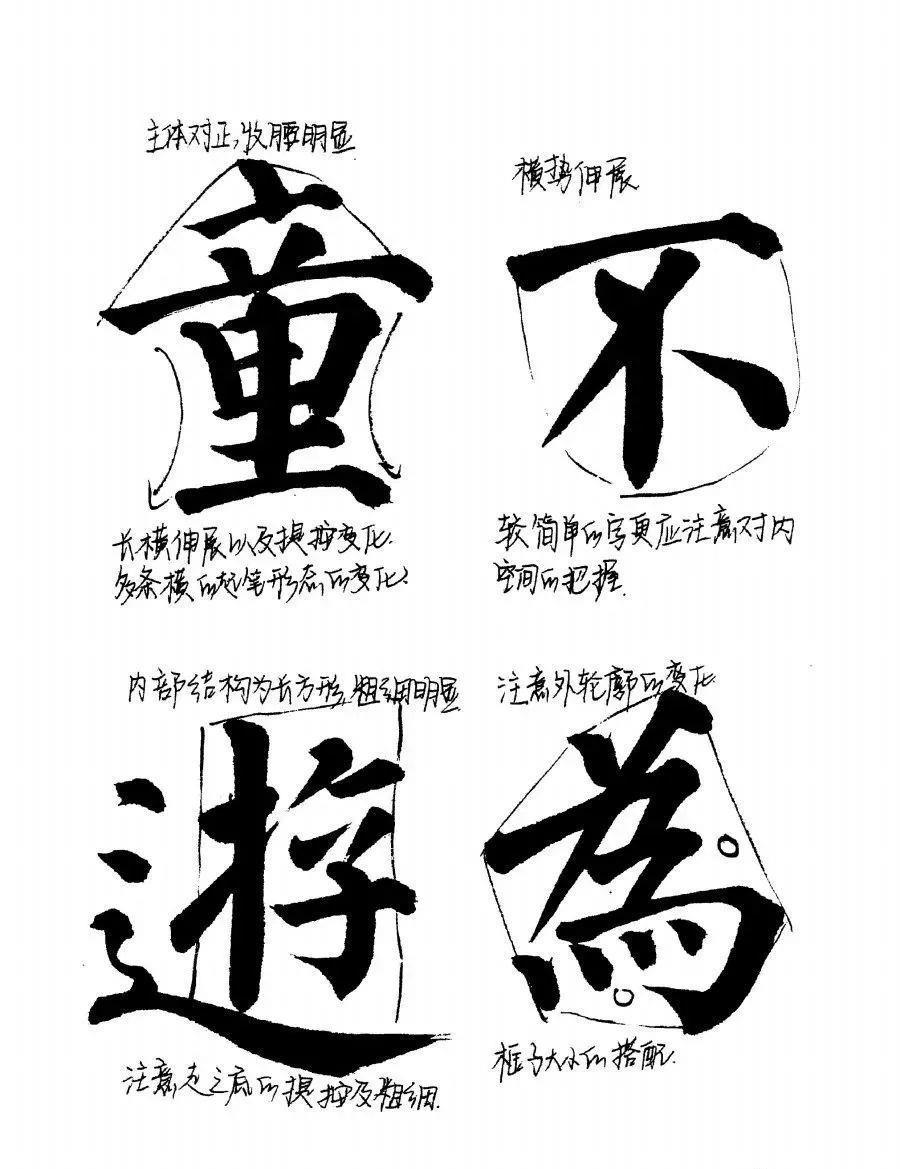 主体对正,收腰明显
童
长横伸展以及提按变化.
多条横的起笔形态的变化.
横势伸展
不
较简单的字更应注意对内
空间的把握.
内部结构为长方形,粗细明显
遊
注意走之底的提按及粗细.
注意外轮廓的变化
為
框子大小的搭配.